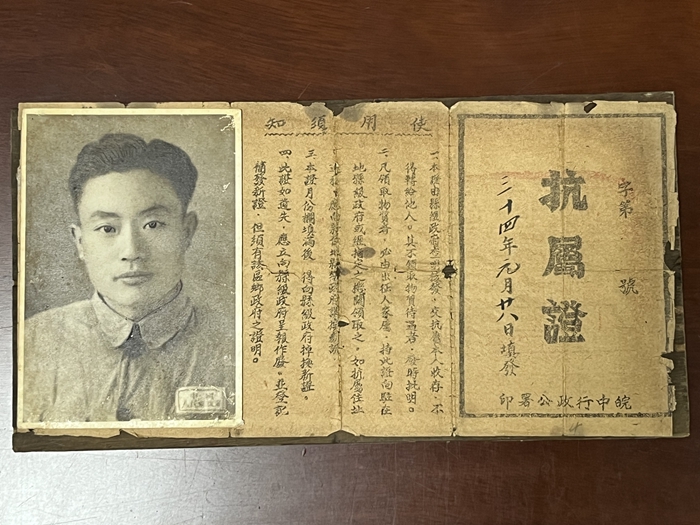 字第 號
抗屬證
三十四年元月廿八日填發
皖中行政公署印
使用須知
一、本證由縣級政府
發，交抗屬本人收存，不
得轉給他人。其不領取物質待遇者，發時批明。
二、凡領取物質者，必由出征人家屬，持此證向駐在
地縣級政府或
機關領取之，如抗屬住址
三、本證月份欄填滿後，得向縣級政府掉換新證。
四、此證如遺失，應立向縣級政府呈報作廢。並登記
補發新證，但須有該區鄉政府之證明。